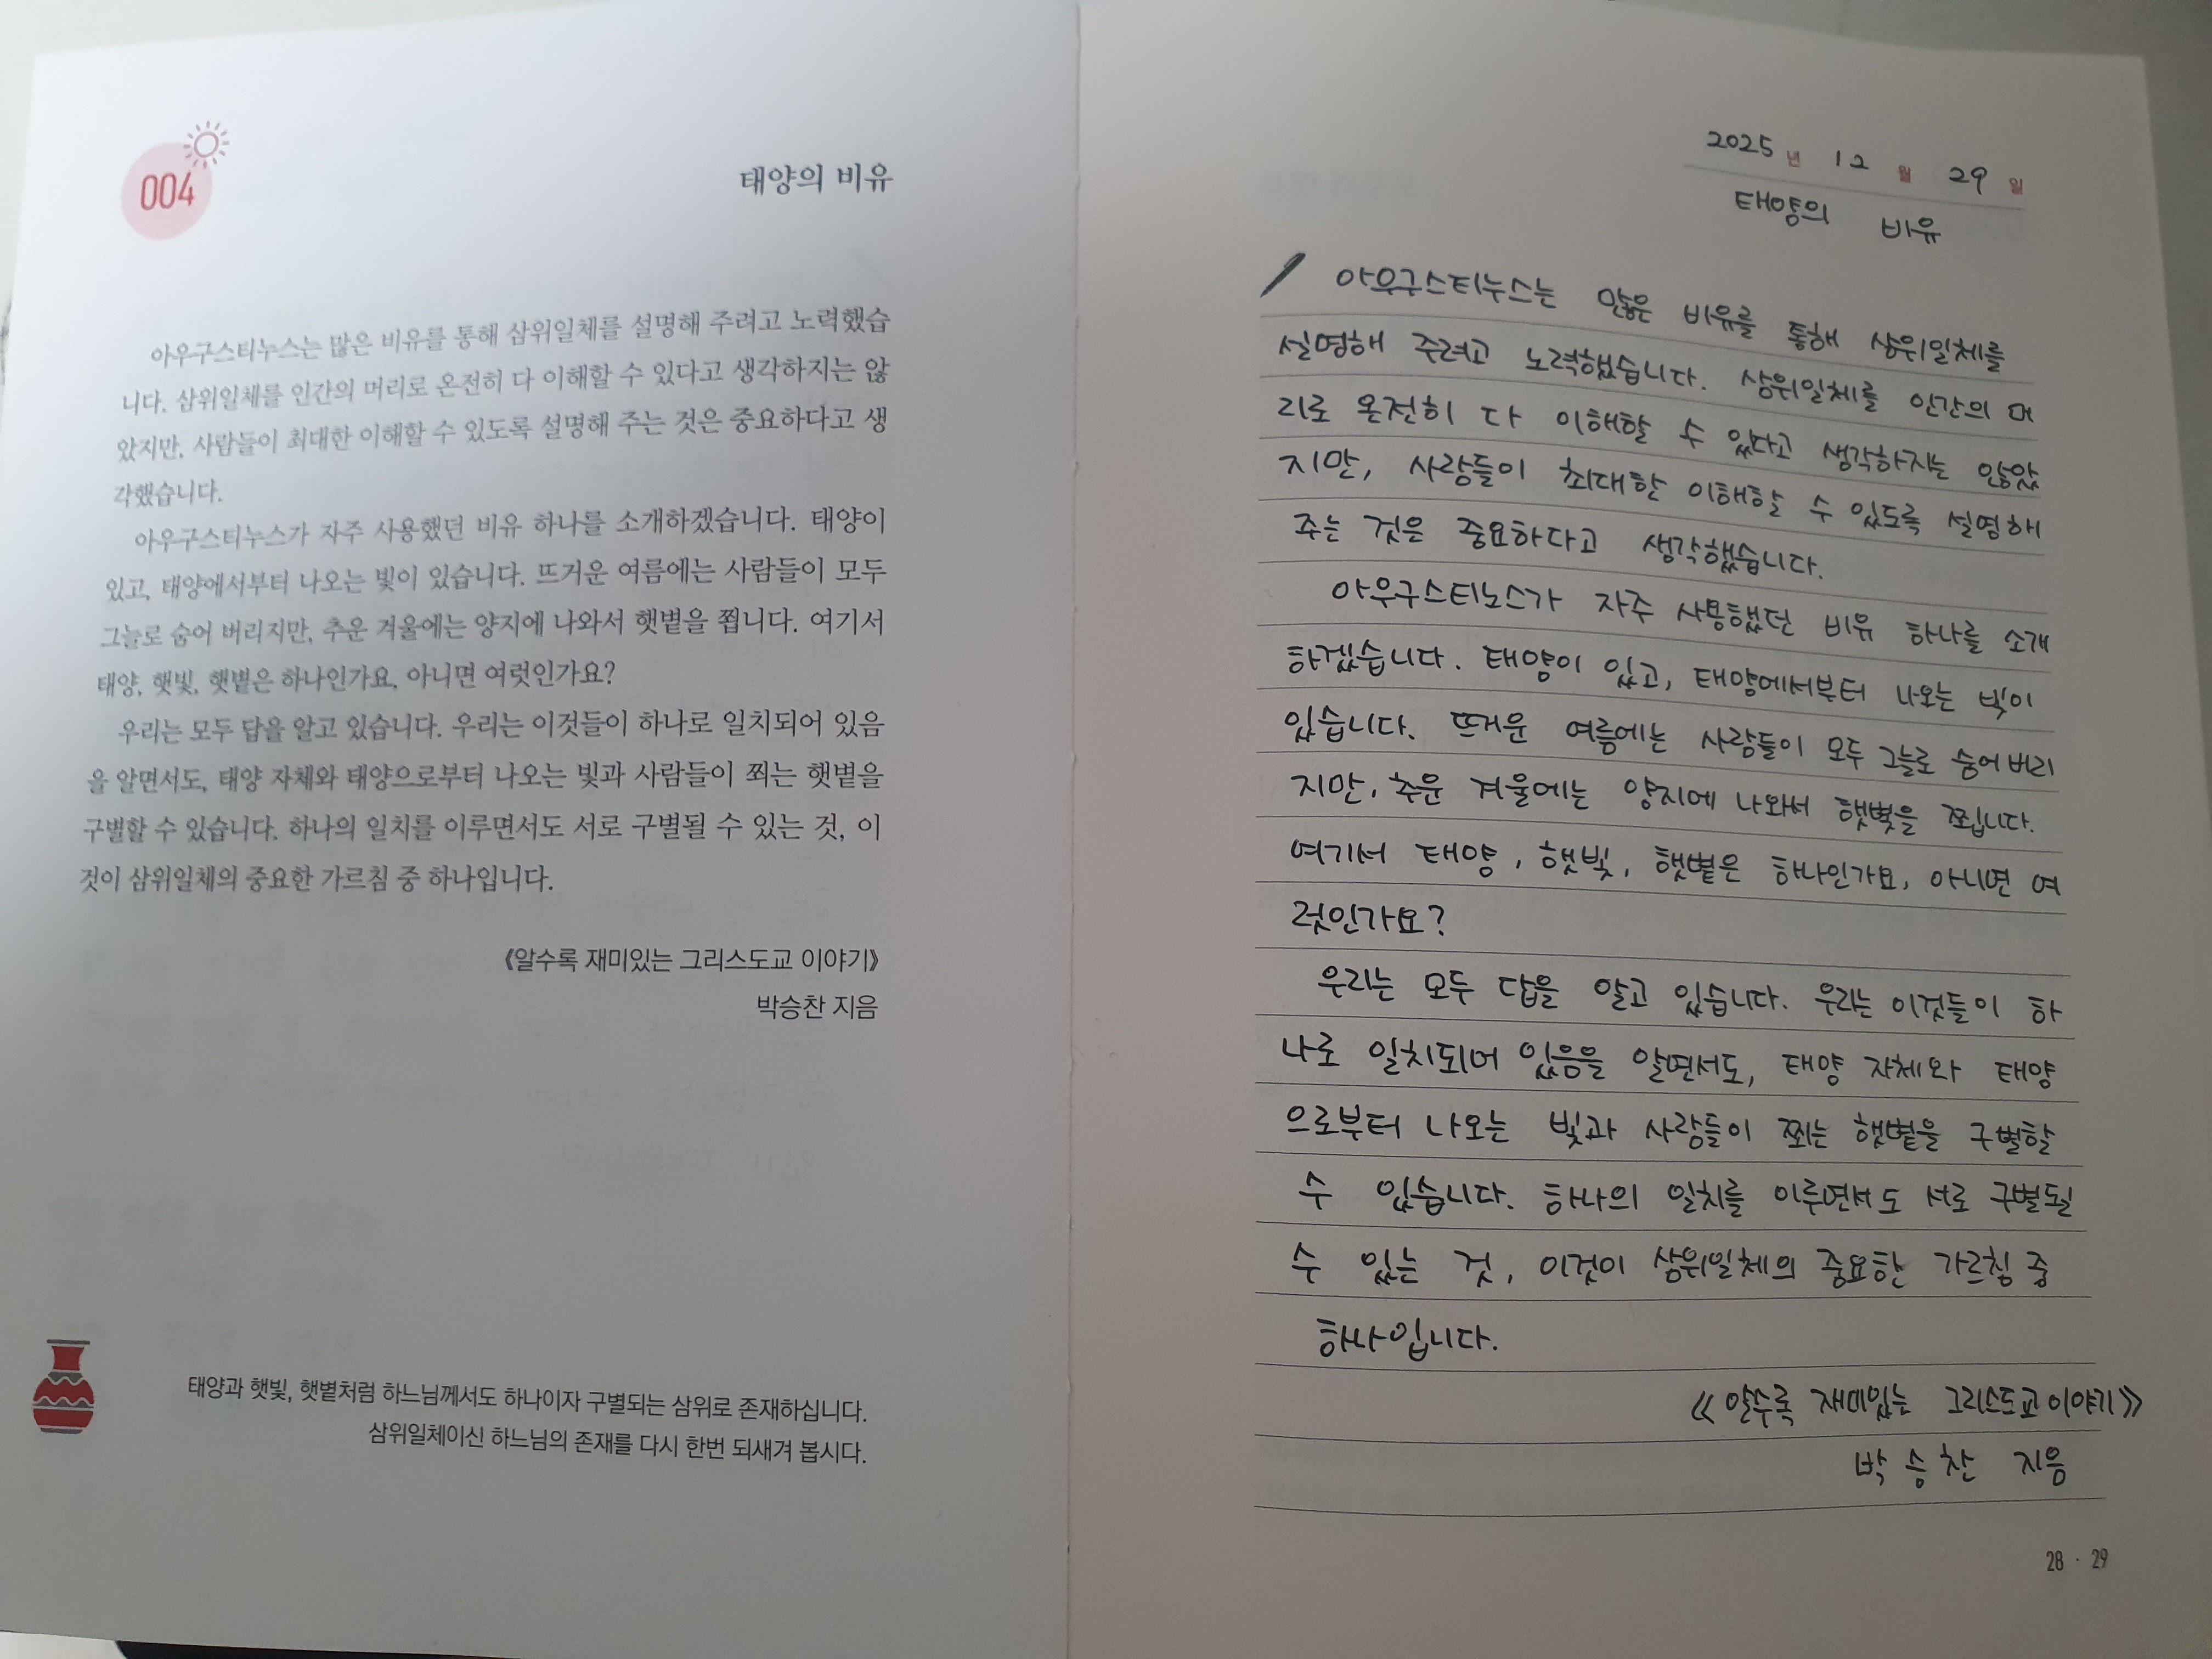 004
태양의 비유
아우구스티누스는 많은 비유를 통해 삼위일체를 설명해 주려고 노력했습
니다. 삼위일체를 인간의 머리로 온전히 다 이해할 수 있다고 생각하지는 않
았지만, 사람들이 최대한 이해할 수 있도록 설명해 주는 것은 중요하다고 생
각했습니다.
아우구스티누스가 자주 사용했던 비유 하나를 소개하겠습니다. 태양이
있고, 태양에서부터 나오는 빛이 있습니다. 뜨거운 여름에는 사람들이 모두
그늘로 숨어 버리지만, 추운 겨울에는 양지에 나와서 햇볕을 쬡니다. 여기서
태양, 햇빛, 햇볕은 하나인가요, 아니면 여럿인가요?
우리는 모두 답을 알고 있습니다. 우리는 이것들이 하나로 일치되어 있음
을 알면서도, 태양 자체와 태양으로부터 나오는 빛과 사람들이 쬐는 햇볕을
구별할 수 있습니다. 하나의 일치를 이루면서도 서로 구별될 수 있는 것, 이
것이 삼위일체의 중요한 가르침 중 하나입니다.
《알수록 재미있는 그리스도교 이야기》
박승찬 지음
태양과 햇빛, 햇볕처럼 하느님께서도 하나이자 구별되는 삼위로 존재하십니다.
삼위일체이신 하느님의 존재를 다시 한번 되새겨 봅시다.
2025년 12월 29일
태양의 비유
아우구스티누스는 많은 비유를 통해 삼위일체를
설명해 주려고 노력했습니다. 삼위일체를 인간의 머
리로 온전히 다 이해할 수 있다고 생각하지는 않았
지만, 사람들이 최대한 이해할 수 있도록 설명해
주는 것은 중요하다고 생각했습니다.
아우구스티노스가 자주 사용했던 비유 하나를 소개
하겠습니다. 태양이 있고, 태양에서부터 나오는 빛이
있습니다. 뜨거운 여름에는 사람들이 모두 그늘로 숨어 버리
지만, 추운 겨울에는 양지에 나와서 햇볓을 쬡니다.
여기서 태양, 햇빛, 햇볕은 하나인가요, 아니면 여
럿인가요?
우리는 모두 답을 알고 있습니다. 우리는 이것들이 하
나로 일치되어 있음을 알면서도, 태양 자체와 태양
으로부터 나오는 빛과 사람들이 쬐는 햇볕을 구별할
수 있습니다. 하나의 일치를 이루면서도 서로 구별될
수 있는 것, 이것이 삼위일체의 중요한 가르침 중
하나입니다.
《알수록 재미있는 그리스도교 이야기》
박승찬 지음
28 · 29